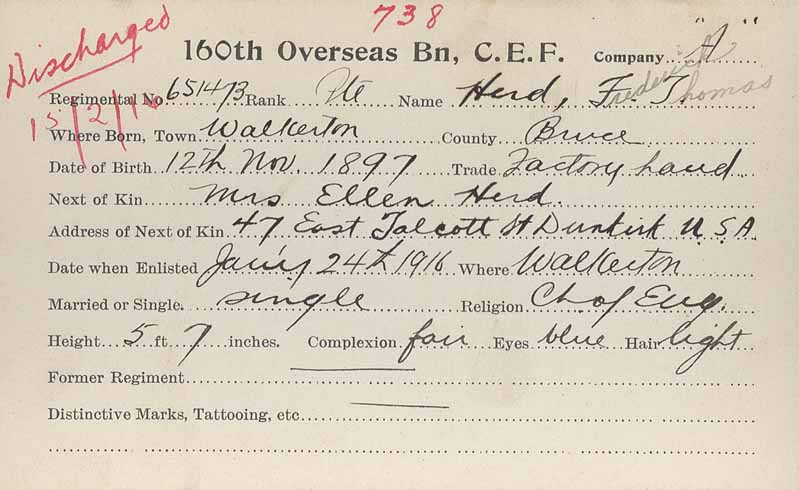 738
Discharged
15/2/16
160th Overseas Bn, C.E.F. Company "A"
Regimental No 651473 Rank Pte Name Herd, F. T.
Frederick Thomas
Where Born, Town Walkerton County Bruce
Date of Birth 12th Nov. 1897 Trade Factory hand
Next of Kin Mrs Ellen Herd.
Address of Next of Kin 47 East Talcott St Dunkirk U.S.A.
Date when Enlisted Jan'y 24th 1916 Where Walkerton
Married or Single. single Religion Ch of Eng.
Height 5 ft 7 inches. Complexion fair Eyes blue Hair light
Former Regiment
Distinctive Marks, Tattooing, etc